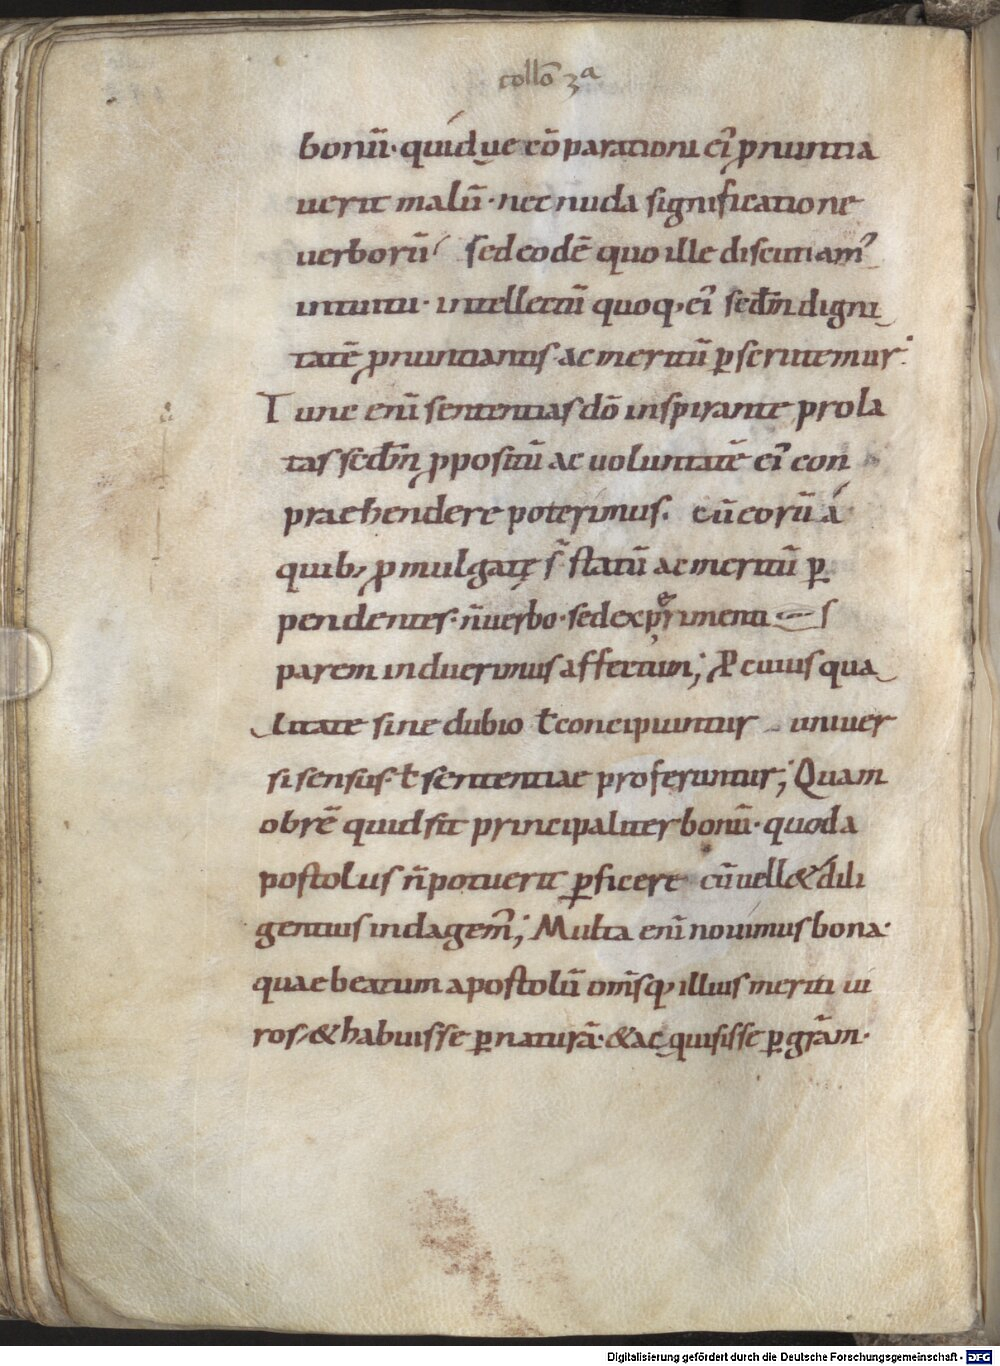 collo̅ 3ª
bonu̅· quid ue co̅parationi ei᾽ pnuntia
uerit malu̅· nec nuda significatione
uerboru̅ sed eode̅ quo ille discutiam᾽
intuitu· intellectu̅ quoq, ei᾽ sedm̅ digni
tate̅ pnuntiantis ac meritu̅ p̲scrutemur·
Tunc eni̅ sententias do̅ inspirante prola
tas sedm̅ ppositu̅ ac uoluntate̅ ei᾽ con
praehendere poterimus. cu̅ eoru̅ á
quib, pmulgatę s̅ statu̅ ac meritu̅ p̲
pendentes· n̅ uerbo· sed experimenti
parem induerimus affectum; P̲ cuius qua
litate sine dubio t̅ concipiuntur uniuer
si sensus· t̅ sententiae proferuntur; Quam
obre̅ quid sit principaliter bonu̅· quod a
postolus n̅ potuerit p̲ficere cu̅ uell& dili
gentius indagem᾽; Multa eni̅ nouimus bona·
quae beatum apostolu̅ om̅sq, illius meriti ui
ros, & habuisse p̲ natura̅· & acquisisse p̲ gra̅m·
Digitalisierung gefördert durch die Deutsche Forschungsgemeinschaft - DFG